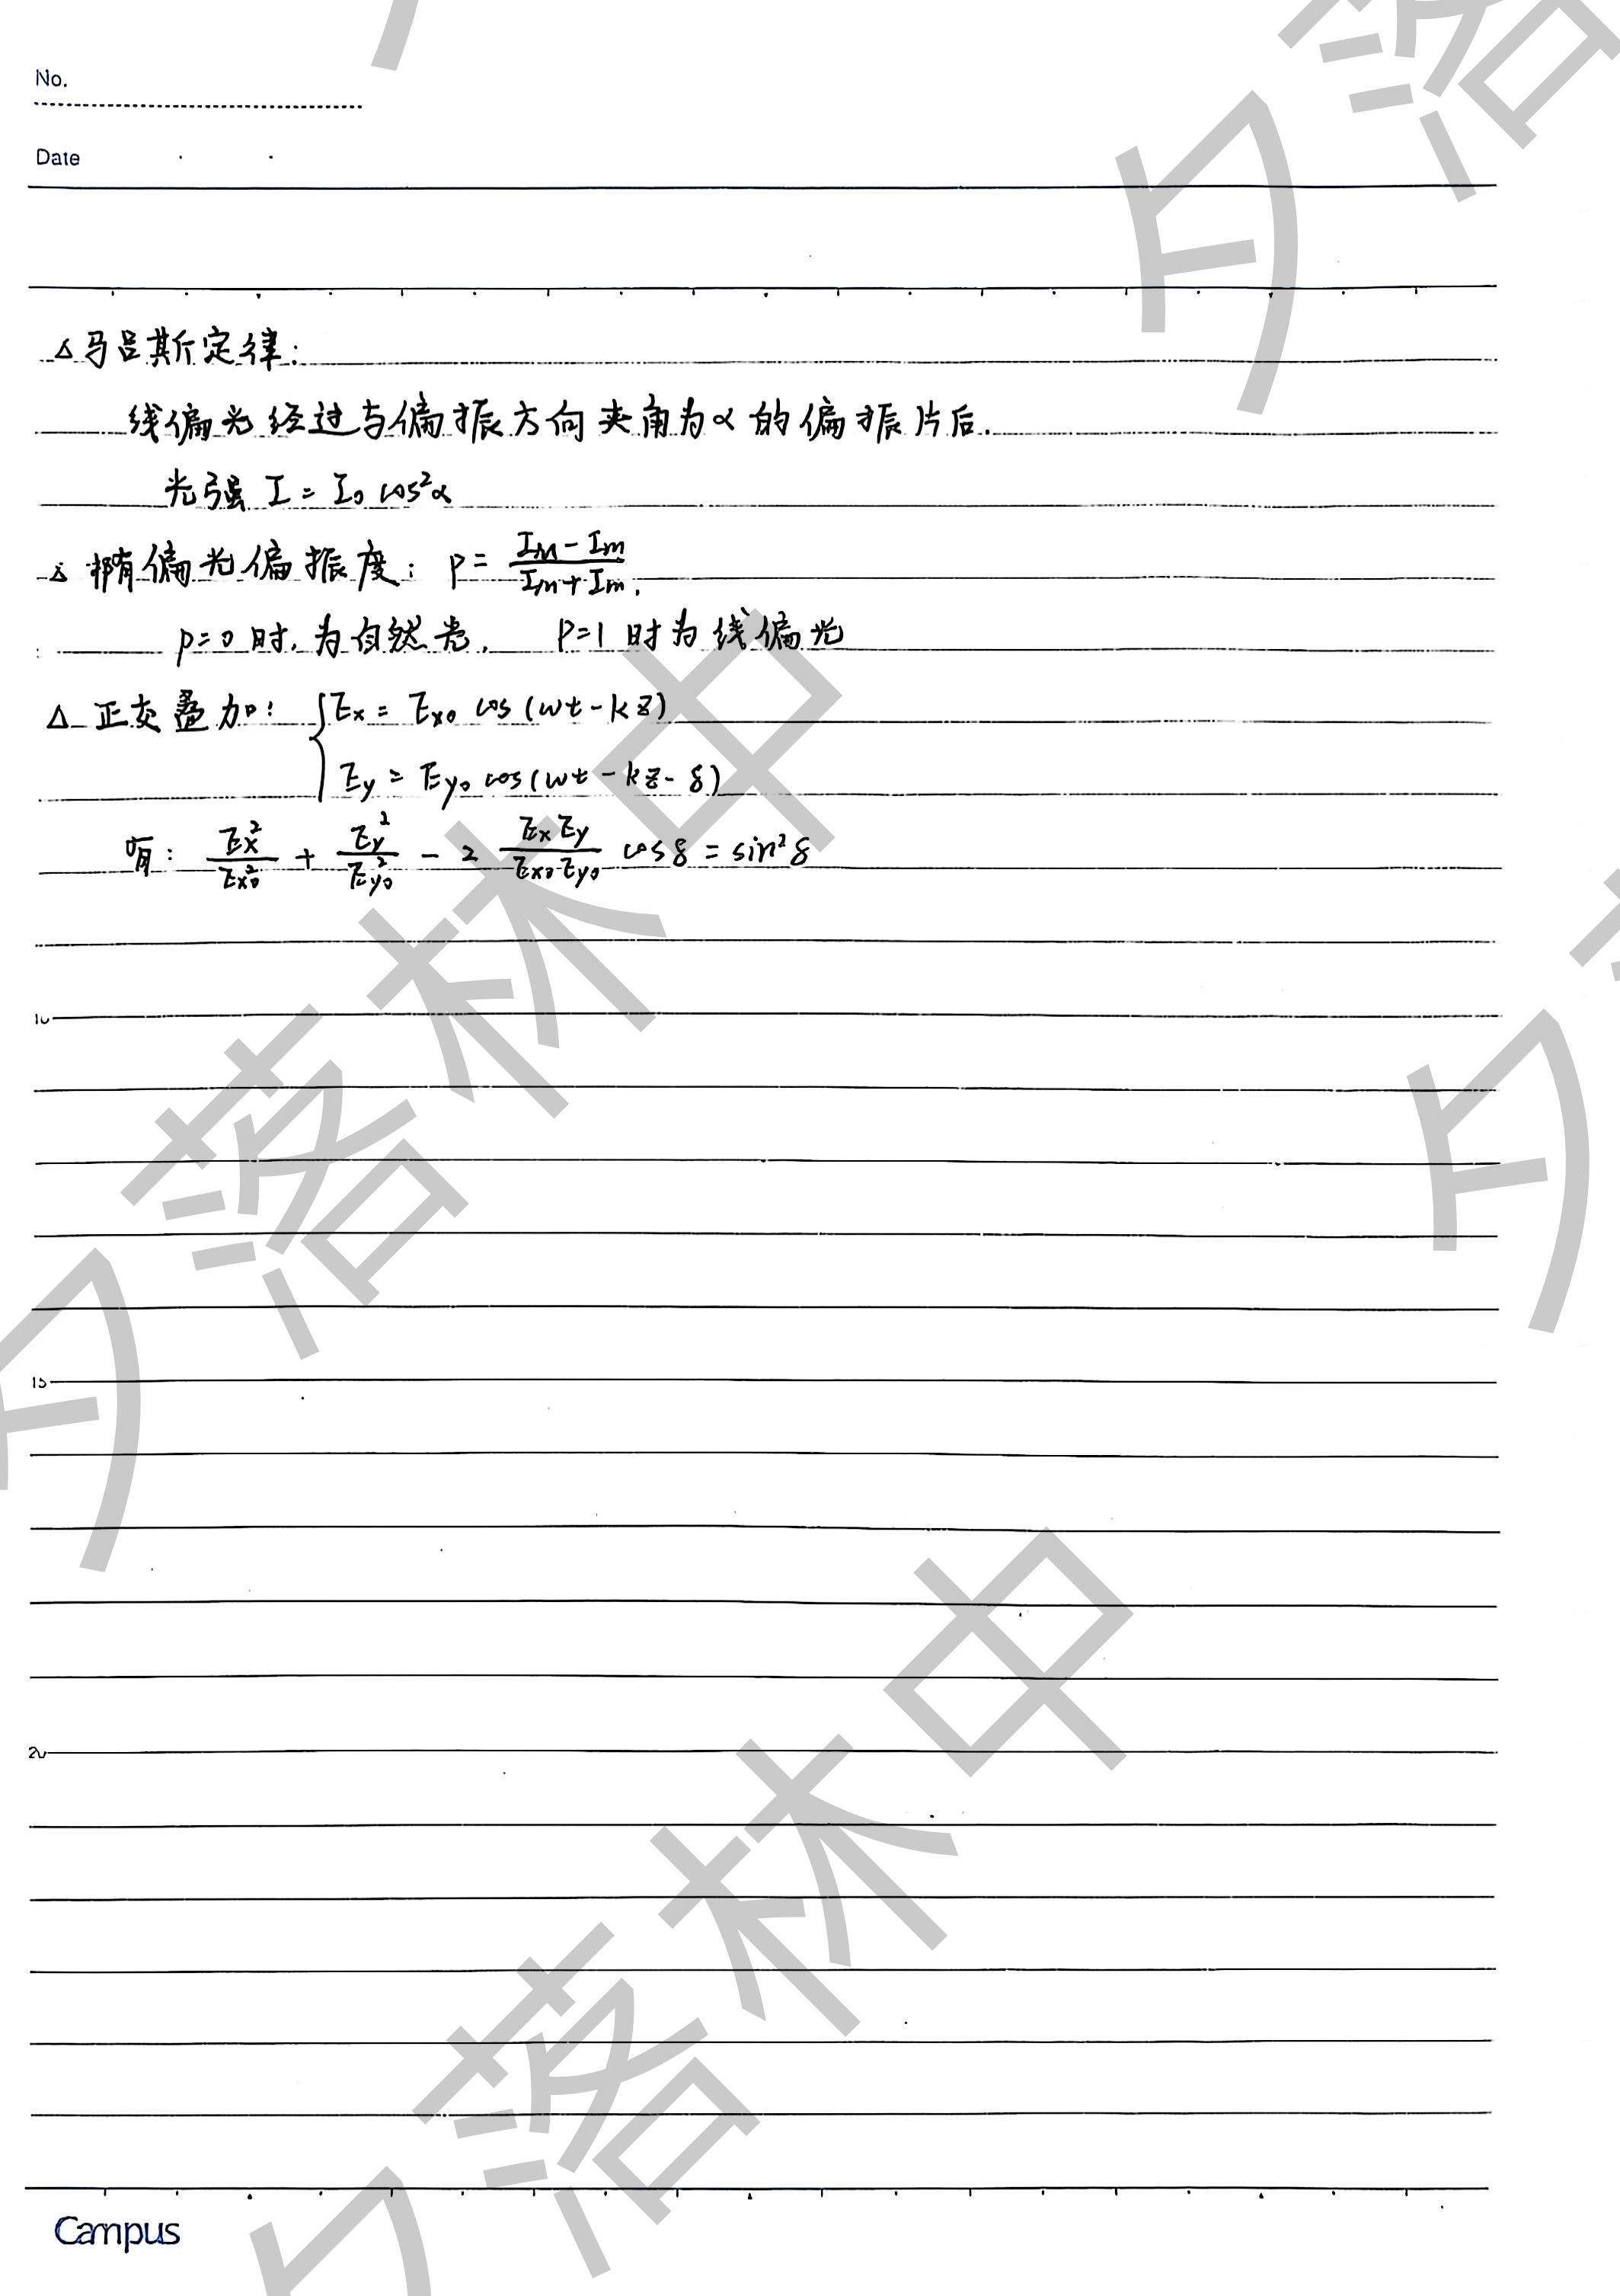 No.
Date
△马吕斯定律:
线偏光经过与偏振方向夹角为α的偏振片后.
光强 I = I₀ cos²α
△ 部偏光偏振度: P = (I_M - I_m)/(I_M + I_m).
P=0时,为自然光. P=1时为线偏光
△ 正交叠加: { Ex = Ex₀ cos(ωt-kz)
Ey = Ey₀ cos(ωt-kz-δ)
有: Ex²/Ex₀² + Ey²/Ey₀² - 2 ExEy/(Ex₀Ey₀) cosδ = sin²δ
10
15
20
Campus
夕落林中
夕落林中
夕落
夕